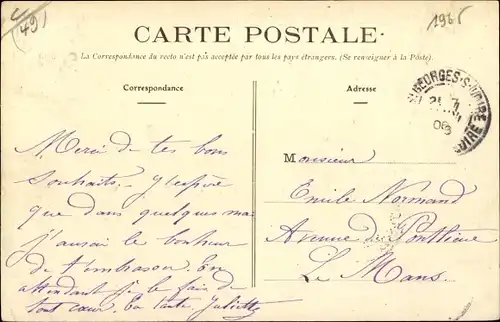 (49)
1985
CARTE POSTALE
La Correspondance du recto n'est pas acceptée par tous les pays étrangers. (Se renseigner à la Poste).
Correspondance
Merci de tes bons
souhaits. J'espère
que dans quelques
j'aurai le bonheur
de t'embrasser. En
attendant je le fais de
tout cœur. Ta Juliette
Adresse
GEORGES-S-LOIRE
06
LOIRE
Monsieur
Emile Normand
Avenue de Pontlieue
Le Mans.